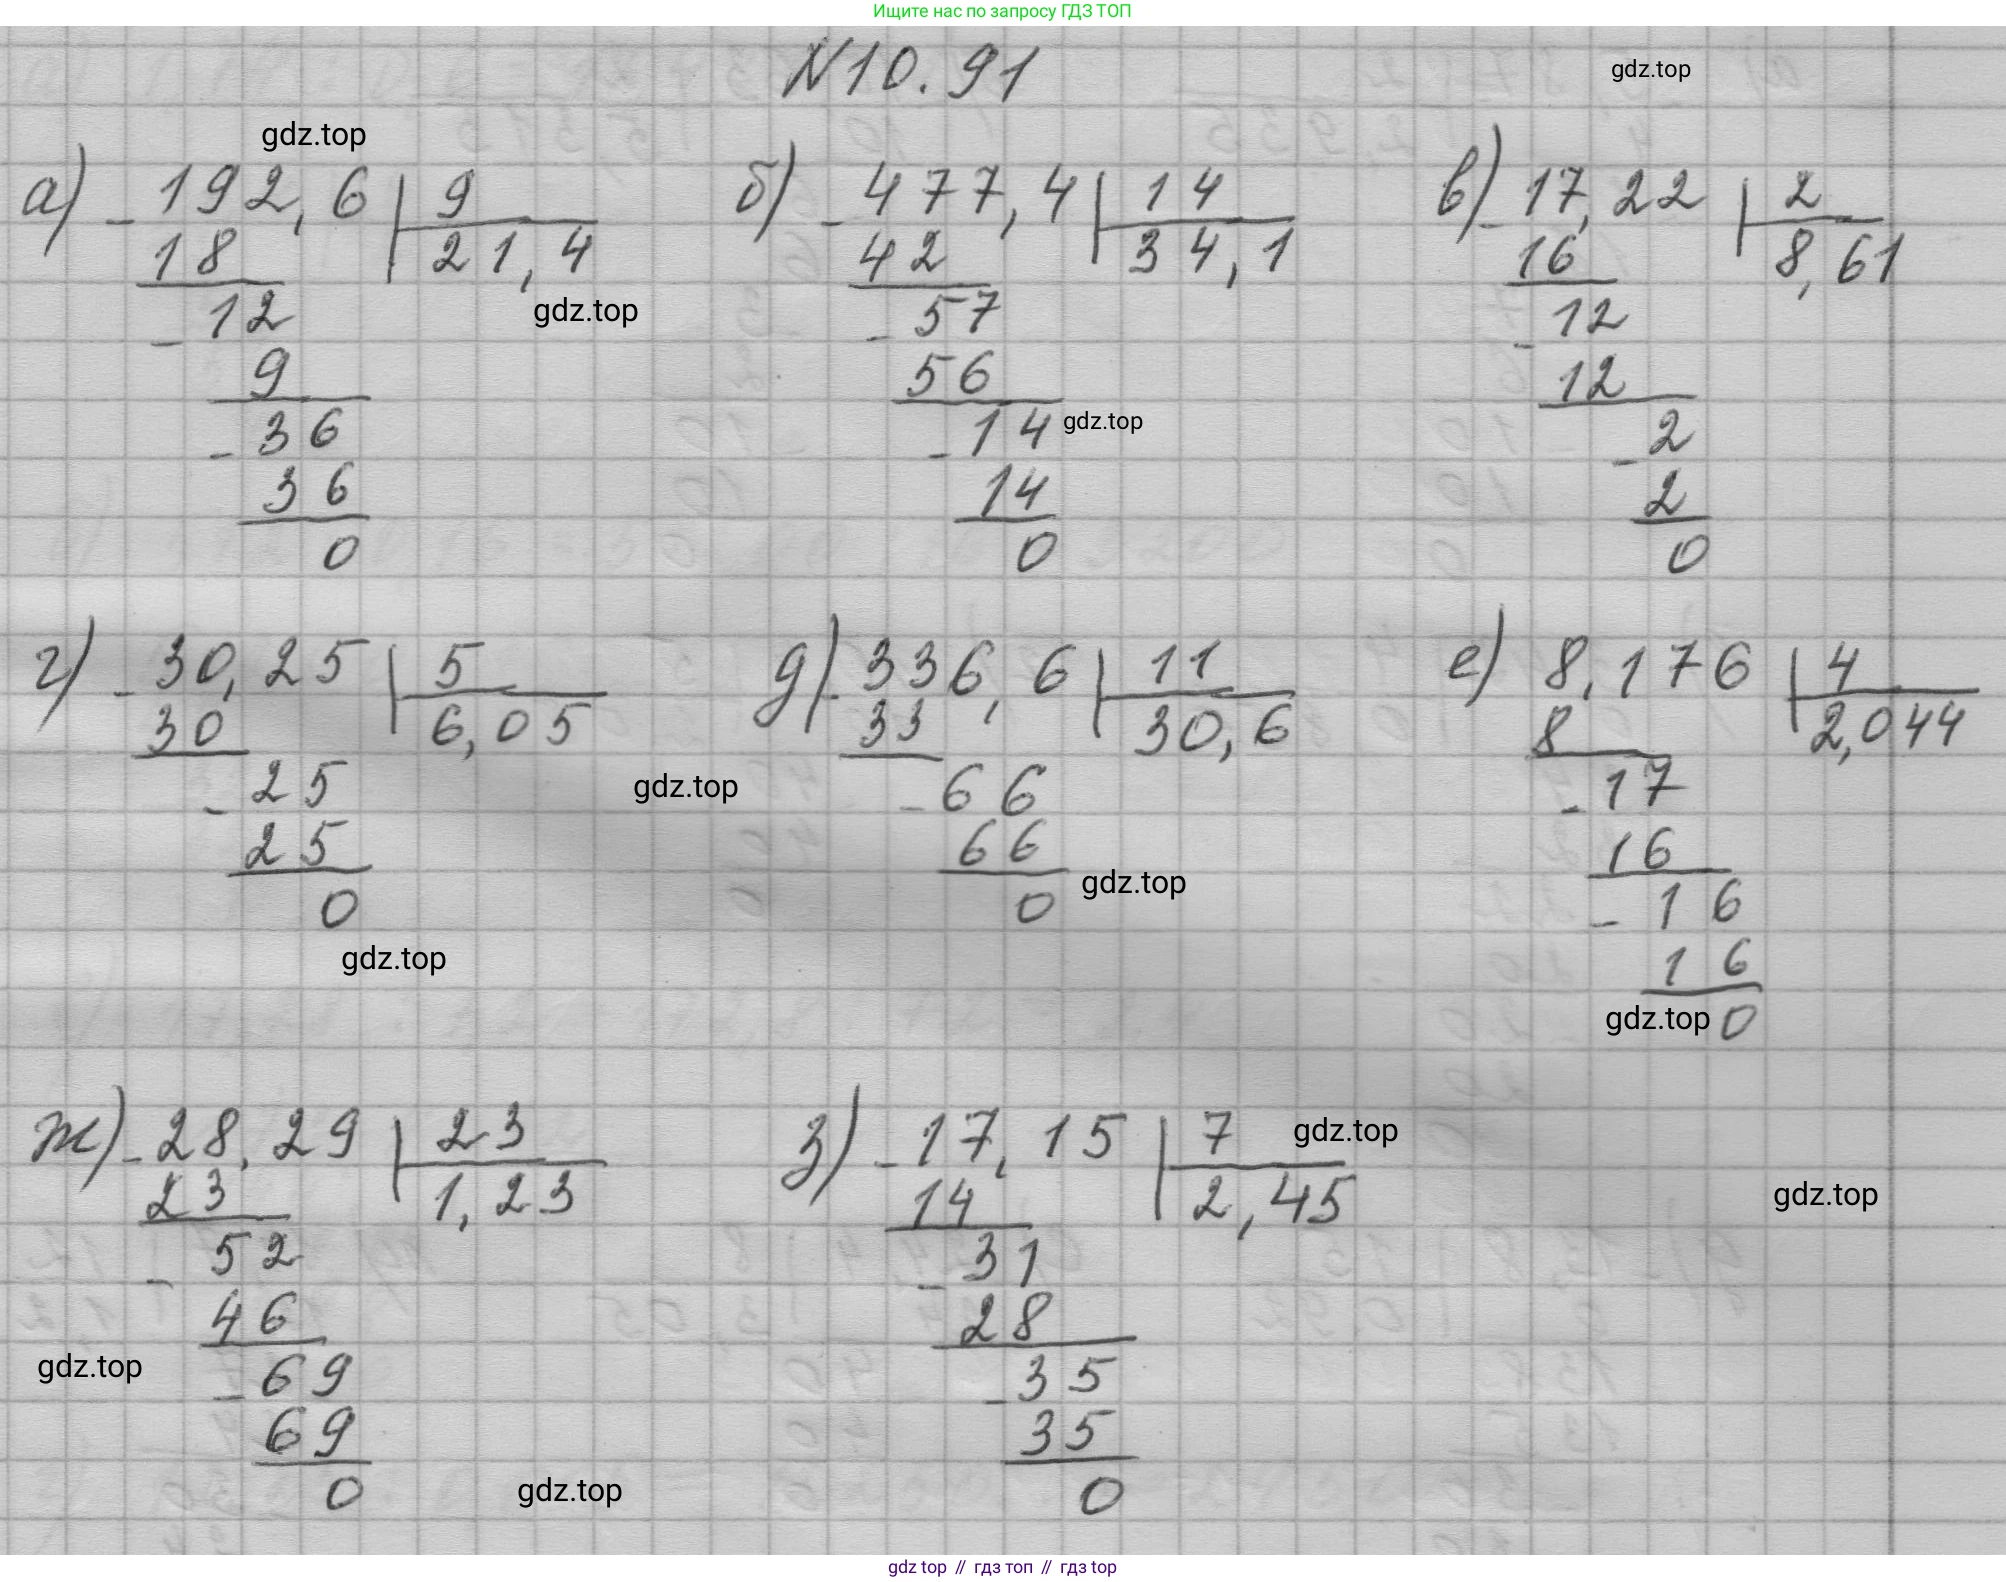 Ищите нас по запросу ГДЗ ТОП
N10.91
gdz.top
gdz.top
а) - 192,6 | 9
18 21,4
gdz.top
- 12
9
- 36
36
0
б) - 477,4 | 14
42 34,1
- 57
56
- 14
gdz.top
14
0
в) - 17,22 | 2
16 8,61
- 12
12
- 2
2
0
г) - 30,25 | 5
30 6,05
- 25
25
0
gdz.top
gdz.top
д) - 336,6 | 11
33 30,6
- 66
66
0
gdz.top
е) 8,176 | 4
8 2,044
- 17
16
- 16
16
0
gdz.top
ж) - 28,29 | 23
23 1,23
- 52
46
- 69
69
0
gdz.top
gdz.top
з) - 17,15 | 7
14 2,45
- 31
28
- 35
35
0
gdz.top
gdz.top
gdz top // гдз топ // гдз top